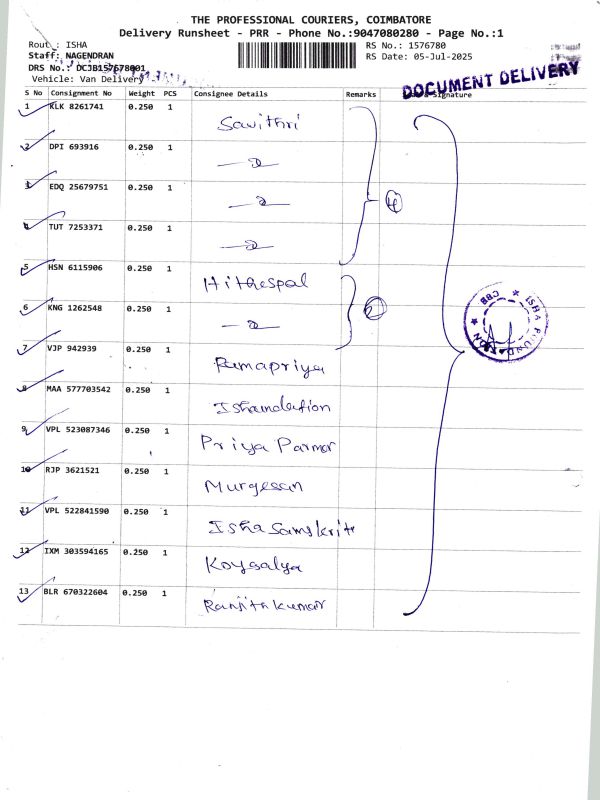 THE PROFESSIONAL COURIERS, COIMBATORE
Delivery Runsheet - PRR - Phone No.:9047080280 - Page No.:1
Rout : ISHA
RS No.: 1576780
Staff: NAGENDRAN
RS Date: 05-Jul-2025
DRS No.: DCJB157678001
Vehicle: Van Delivery
DOCUMENT DELIVERY
S No Consignment No Weight PCS Consignee Details Remarks Signature
1 KLK 8261741 0.250 1 Savithri
2 DPI 693916 0.250 1
3 EDQ 25679751 0.250 1
4 TUT 7253371 0.250 1
4
5 HSN 6115906 0.250 1 Hithespal
6 KNG 1262548 0.250 1
2
7 VJP 942939 0.250 1 Ramapriya
8 MAA 577703542 0.250 1 Ishamdation
9 VPL 523087346 0.250 1 Priya Parmar
10 RJP 3621521 0.250 1 Murgesan
11 VPL 522841590 0.250 1 Isha Samskriti
12 IXM 303594165 0.250 1 Koysalya
13 BLR 670322604 0.250 1 Ranjithkumar
ISHA FOUNDATION * CBE *